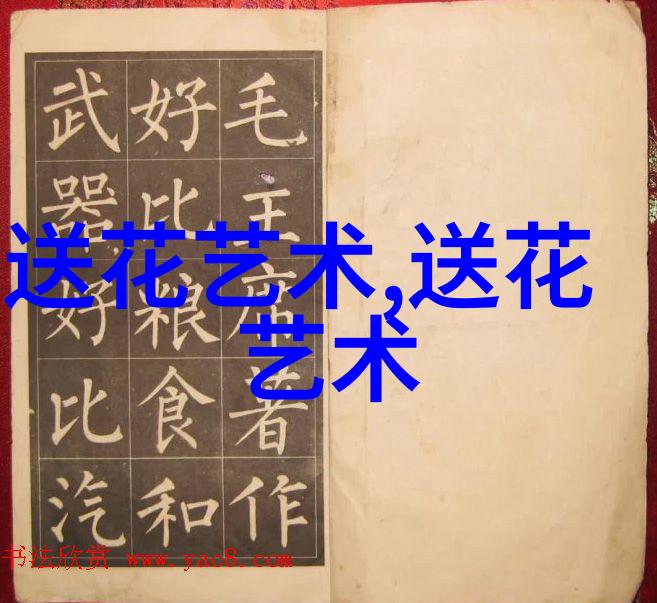 毛主席著作
好比粮食和
武器好比汽
送花艺术,送花
艺术
书法欣赏 www.yac8.com